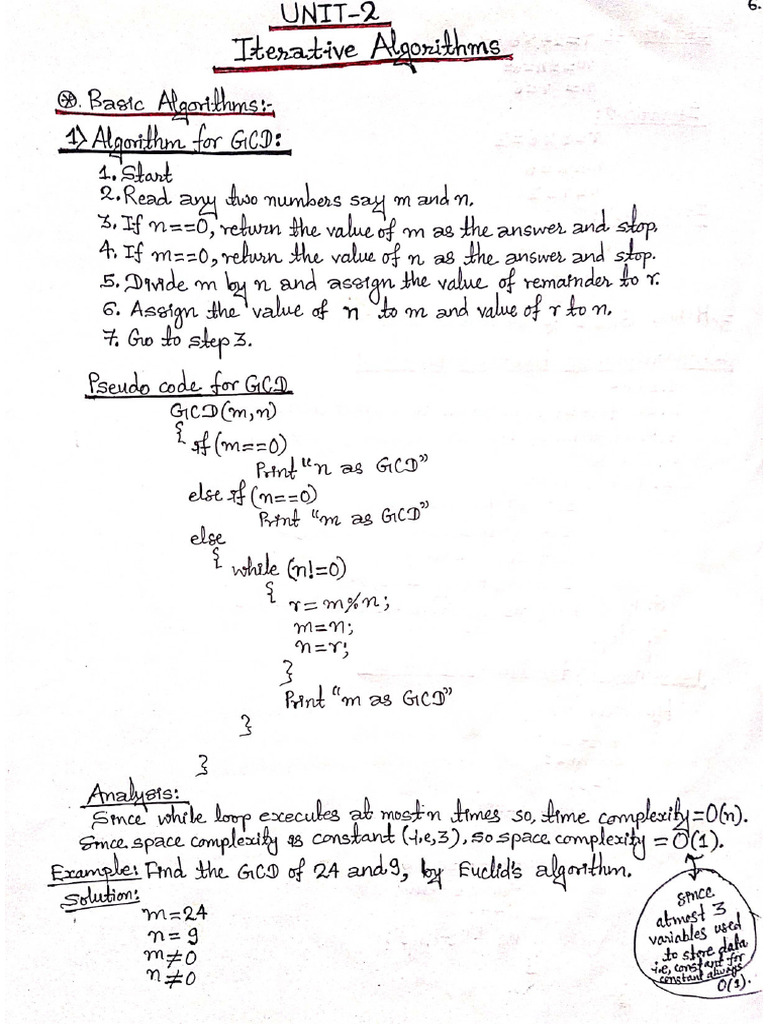 6.
UNIT-2
Iterative Algorithms
⊛. Basic Algorithms:-
1) Algorithm for GCD:
1. Start
2. Read any two numbers say m and n.
3. If n==0, return the value of m as the answer and stop.
4. If m==0, return the value of n as the answer and stop.
5. Divide m by n and assign the value of remainder to r.
6. Assign the value of n to m and value of r to n.
7. Go to step 3.
Pseudo code for GCD
GCD(m,n)
{
if(m==0)
Print "n as GCD"
else if(n==0)
Print "m as GCD"
else
{ while (n!=0)
{
r=m%n;
m=n;
n=r;
}
Print "m as GCD"
}
}
Analysis:
Since while loop executes at most n times so, time complexity=O(n).
Since space complexity is constant (i.e, 3), so space complexity = O(1).
Example: Find the GCD of 24 and 9, by Euclid's algorithm.
Solution:
m=24
n=9
m≠0
n≠0
Since
atmost 3
variables used
to store data
i.e, constant for
constant always
O(1).